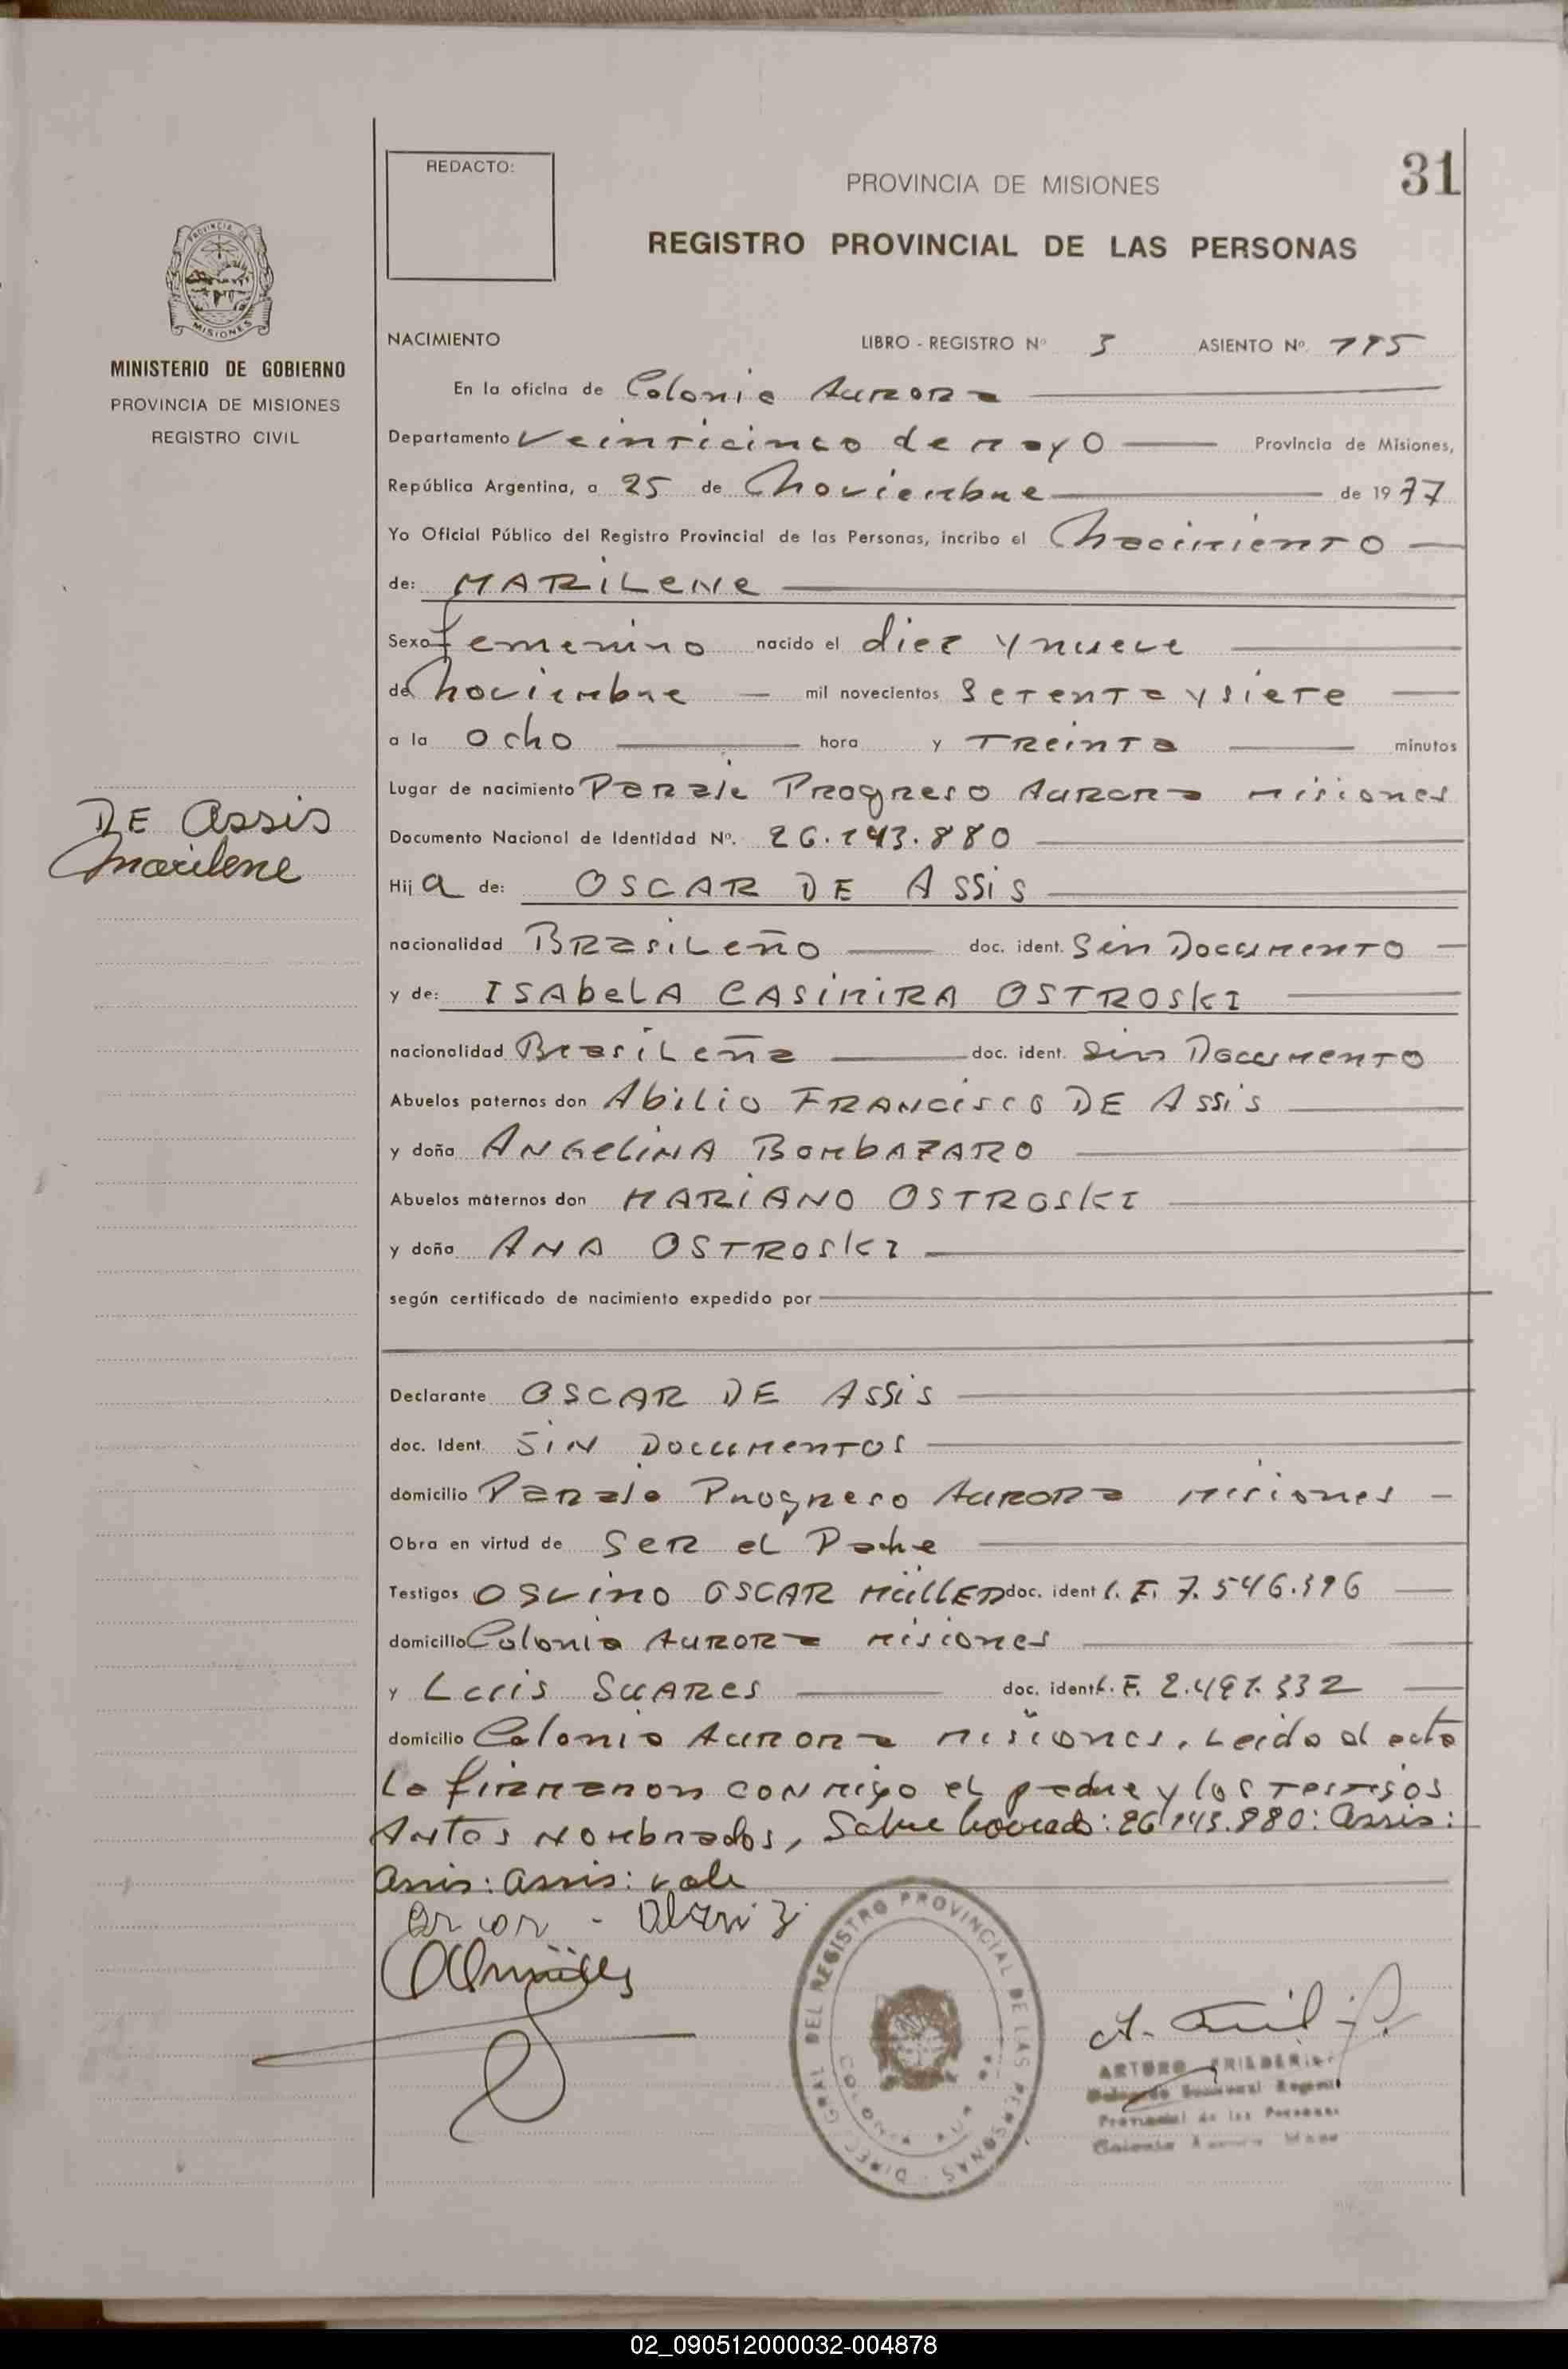 REDACTO:
PROVINCIA DE MISIONES
31
REGISTRO PROVINCIAL DE LAS PERSONAS
PROVINCIA DE
MISIONES
MINISTERIO DE GOBIERNO
PROVINCIA DE MISIONES
REGISTRO CIVIL
NACIMIENTO LIBRO - REGISTRO Nº 3 ASIENTO Nº 195
En la oficina de Colonia Aurora
Departamento Veinticinco de mayo Provincia de Misiones,
República Argentina, a 25 de Noviembre de 1977
Yo Oficial Público del Registro Provincial de las Personas, incribo el Nacimiento
de: MARILENE
Sexo femenino nacido el diez y nueve
de Noviembre mil novecientos Setenta y siete
a la ocho hora y treinta minutos
Lugar de nacimiento Paraje Progreso Aurora misiones
DE Assis
Marilene
Documento Nacional de Identidad Nº. 26.143.880
Hija de: OSCAR DE ASSIS
nacionalidad Brasileño doc. ident. Sin Documento
y de: ISAbeLA CASIMIRA OSTROSKI
nacionalidad Brasileña doc. ident. Sin Documento
Abuelos paternos don Abilio FRANCISCO DE Assis
y doña ANGELINA BOMBAZARO
Abuelos maternos don MARIANO OSTROSKI
y doña ANA OSTROSKI
según certificado de nacimiento expedido por
Declarante OSCAR DE Assis
doc. Ident. SIN Documentos
domicilio Paraje Progreso Aurora misiones
Obra en virtud de Ser el Padre
Testigos OSVINO OSCAR MÜLLER doc. ident L.E. 7.546.396
domicilio Colonia Aurora misiones
y Luis SUARES doc. ident L.E. 2.491.332
domicilio Colonia Aurora misiones. Leido el acta
la firmaron conmigo el padre y los testigos
Antes Nombrados, Sobre borrado: 26.143.880: Assis:
Assis: Assis: vale
DIREC. GRAL. DEL REGISTRO PROVINCIAL DE LAS PERSONAS
ARTURO
Provincial de las Personas
Colonia Aurora
02_090512000032-004878